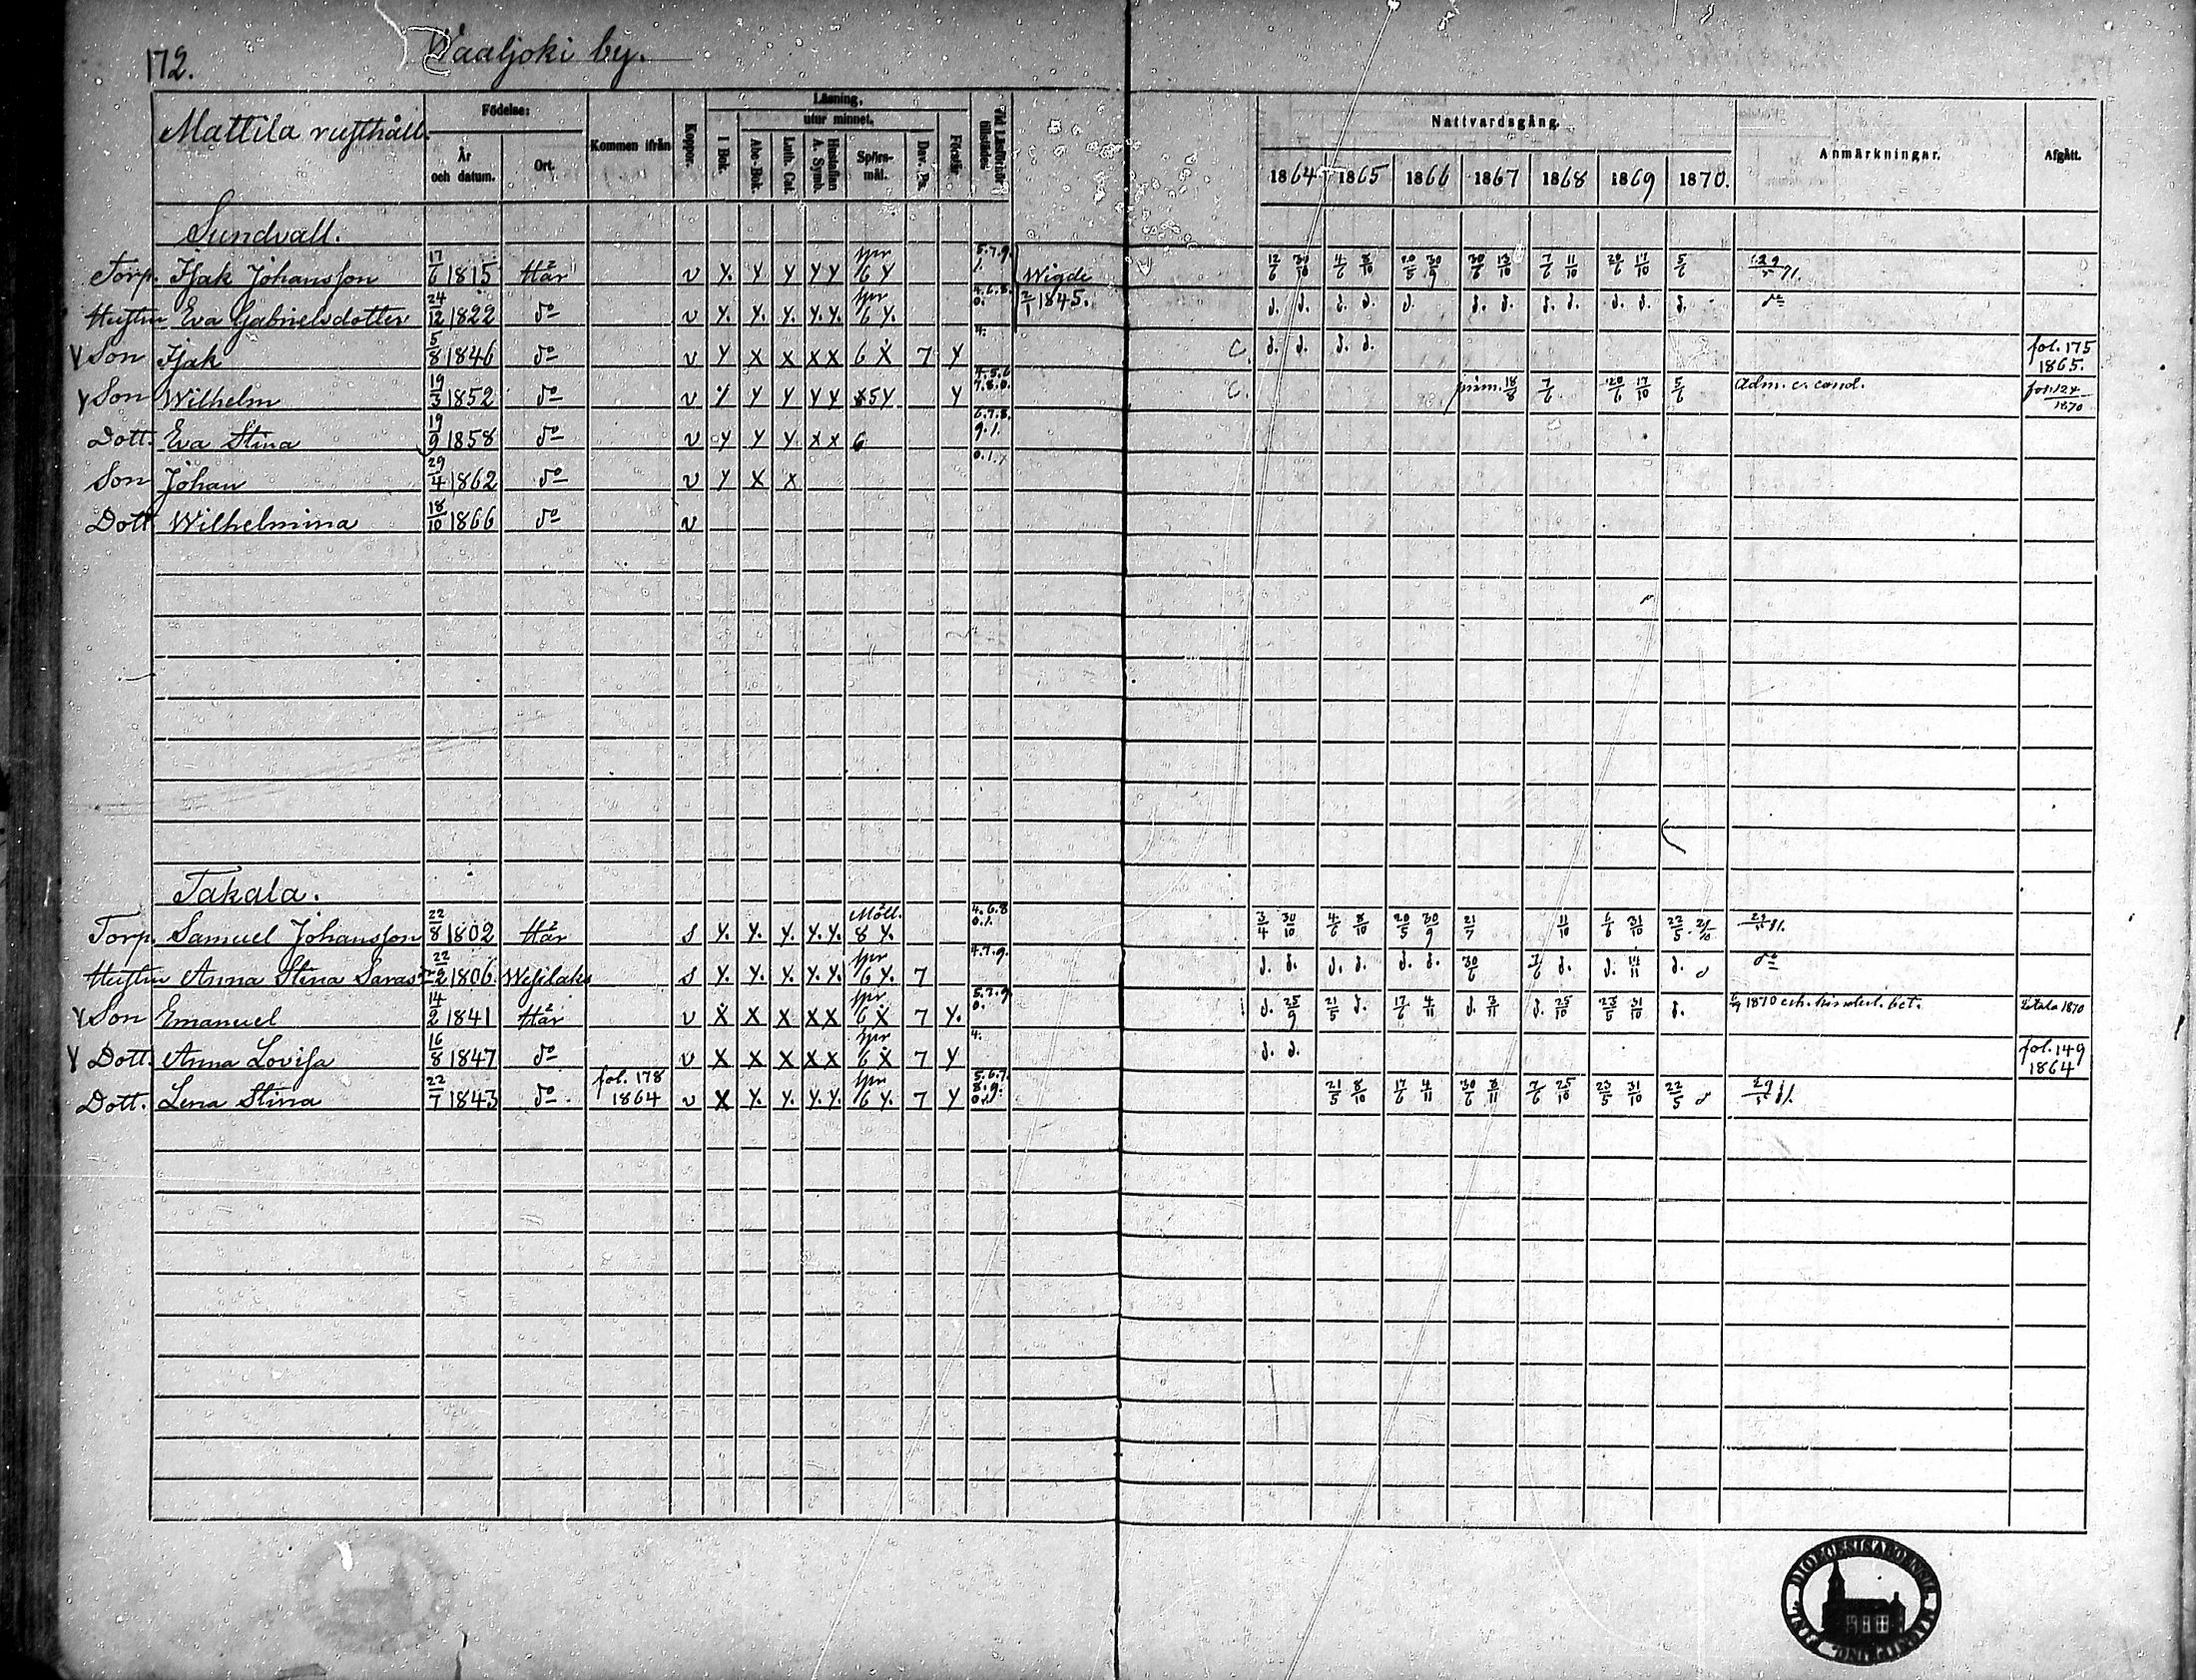 172.
Waaljoki by.
Mattila rusthåll.
Födelse:
År och datum.
Ort.
Kommen ifrån
Koppor.
Läsning,
utur minnet,
I Bok.
Abc-Bok.
Luth. Cat.
Hustaflan A. Symb.
Spörs-mål.
Dav. Ps.
Förstår
Vid Läsförhör tillstädes.
Nattvardsgång.
1864 1865 1866 1867 1868 1869 1870.
Anmärkningar.
Afgått.
Sundvall.
Torp. Isak Johansson 17/6 1815 Här v y. y y y y spr 6 y 5.7.9. 1. Wigde 12/6 30/10 4/6 8/10 20/5 30/9 30/6 13/10 7/6 11/10 20/6 17/10 5/6
Hustru Eva Gabrielsdotter 24/12 1822 do v y. y. y. y. y. spr 6 y. 4.6.8. 0. 2/1 1845. d. d. d. d. d. d. d. d. d. d. d. d. do
y Son Isak 5/8 1846 do v y x x x x 6 x 7 y 4. C. d. d. d. d. fol. 175 1865.
y Son Wilhelm 19/3 1852 do v y y y y y 5 y y 4.5.6 7.8.0. C. prim. 18/8 7/6 20/6 17/10 5/6 Adm. c. cond. fol. 124 1870
Dott. Eva Stina 19/9 1858 do v y y y x x 6 6.7.8. 9.1.
Son Johan 29/4 1862 do v y x x 0.1.
Dott Wilhelmina 18/10 1866 do v
Takala.
Torp. Samuel Johansson 22/8 1802 Här s y. y. y. y. y. Möll. 8 y. 4.6.8 0.1. 3/4 30/10 4/6 8/10 20/5 30/9 21/7 11/10 6/6 31/10 22/5
Hustru Anna Stina Savas 22/2 1806 Wesilaks s y. y. y. y. y. spr 6 y. 7 4.7.9. d. d. d. d. d. d. 30/6 7/6 d. d. 14/11 d. d do
y Son Emanuel 14/2 1841 Här v x x x x x spr 6 x 7 y. 5.7.9 0. d. 25/9 21/5 d. 17/6 4/11 d. 3/11 d. 25/10 23/5 31/10 d. 1870 erh. hinderl. bet. 1870
y Dott. Anna Lovisa 16/8 1847 do v x x x x x spr 6 x 7 y 4. d. d. fol. 149 1864
Dott. Lena Stina 22/7 1843 do fol. 178 1864 v x y. y. y. y. spr 6 y. 7 y 5.6.7. 8.9. 21/5 8/10 17/6 4/11 30/6 3/11 7/6 25/10 23/5 31/10 22/5 d